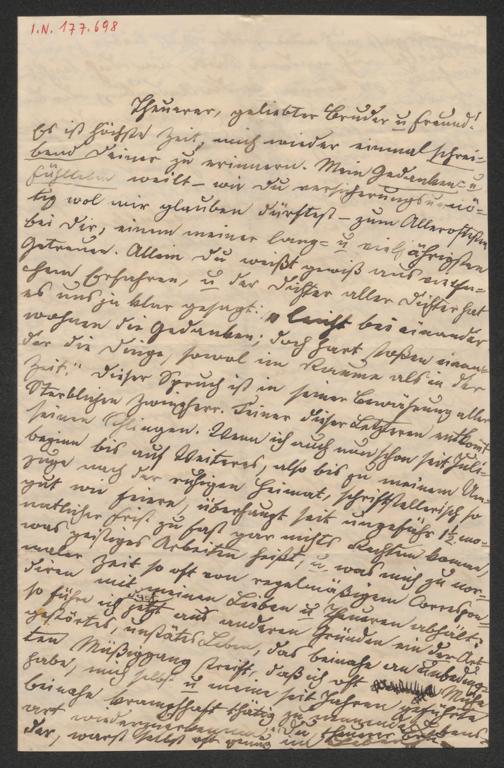 I.N. 177.698
Theuerer, geliebter Bruder u Freund!
Es ist höchste Zeit, mich wieder einmal schrei-
bend Deiner zu erinnern. Mein Gedanken- u
Fühlleben weilt – wie Du versicherungsunnö-
tig wol mir glauben dürftest – zum Alleröftesten
bei Dir, einem meiner lang- u vieljährigsten
Getreuen. Allein Du weißt gewiß aus
chem Erfahren, u der Dichter aller Dichter hat
es uns zu klar gesagt: „Leicht bei einander
wohnen die Gedanken, doch hart stoßen einan-
der die Dinge, sowol im Raume als in der
Zeit." Dieser Spruch ist in seiner Bewährung aller
Sterblichen Zwingherr. Keiner dieser Letzteren entkömt
seinen Schlingen. Wenn ich auch nun schon seit Juli-
beginn bis auf Weiteres, also bis zu meinem Um-
zuge nach der ruhigen Heimat, schriftstellerisch so
gut wie feiere, überhaupt seit ungefähr 1½ mo-
natlicher Frist zu fast gar nichts Rechtem komme,
was geistiges Arbeiten heißt, u. was mich zu nor-
maler Zeit so oft von regelmäßigem Correspon-
diren mit meinen Lieben u Theuren abhält:
so führe ich doch jetzt aus anderen Gründen ein der Art
gestörtes, unstätes Leben, das beinahe an
ten Müßiggang streift, daß ich oft Mühe
habe, mich selbst u meine seit Jahren geführte
beinahe krampfhaft thätig zu nennende Lebens-
art wiederzuerkennen. Du, theuerer
der, warst selbst oft genug im